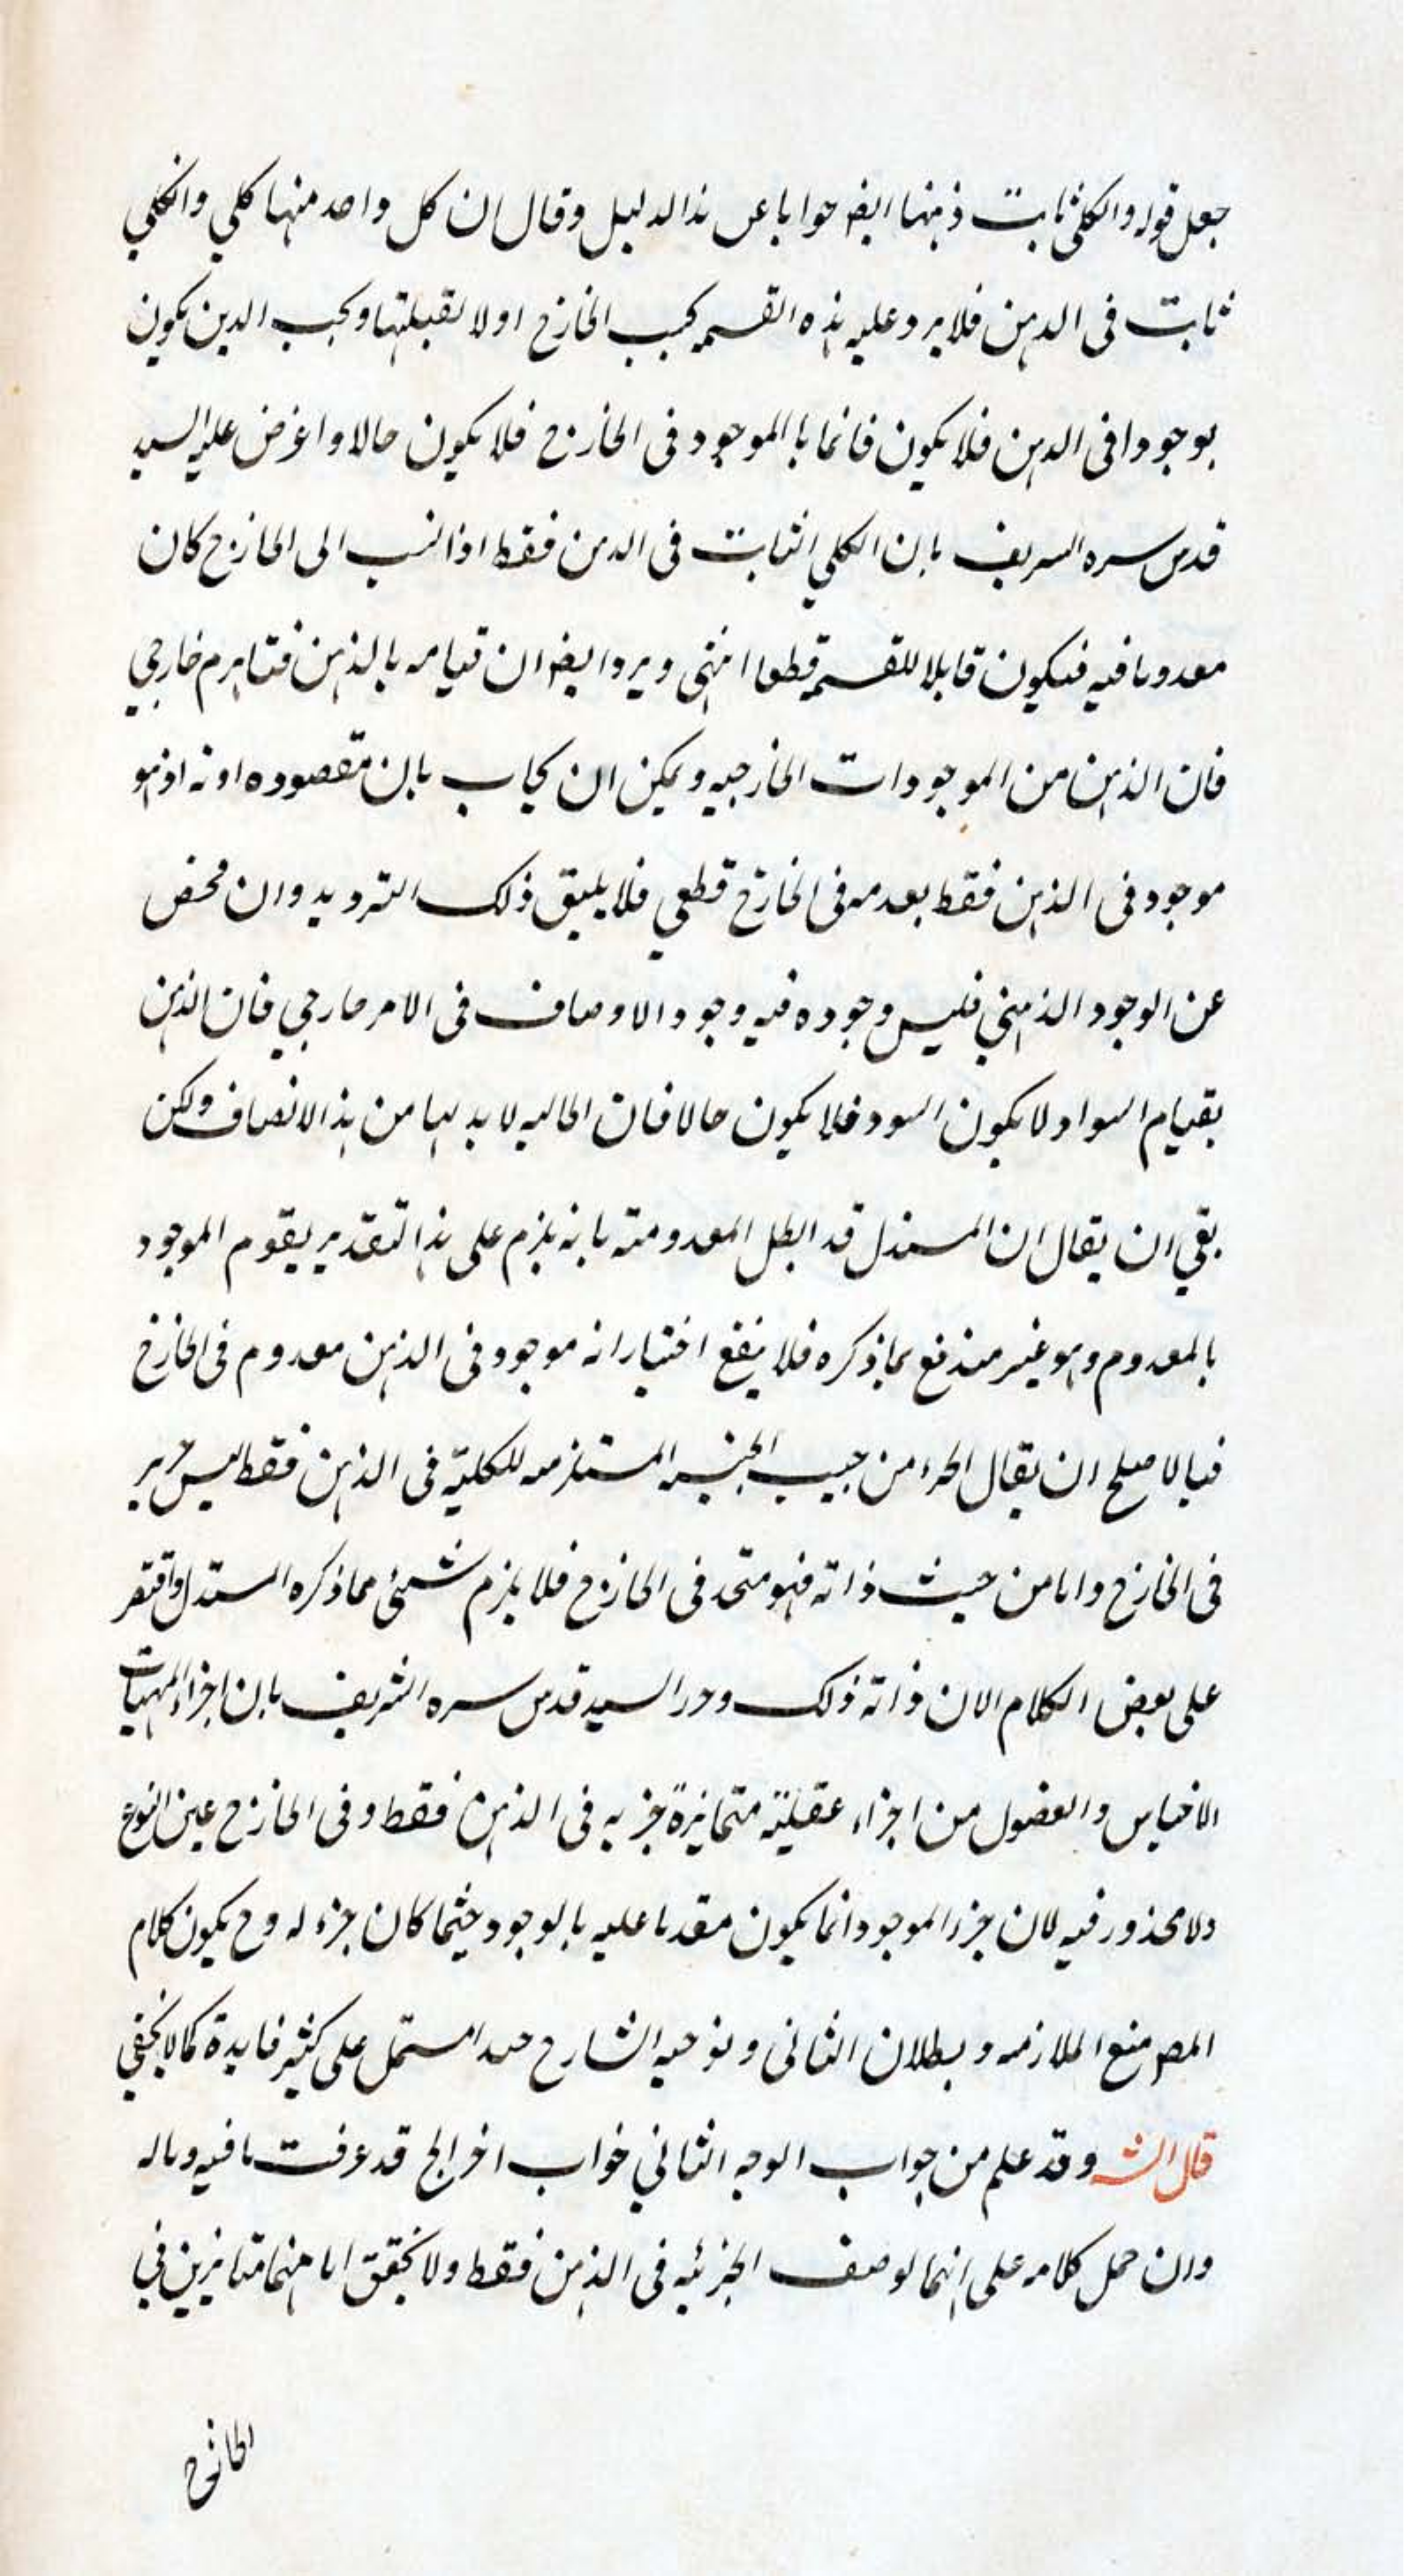 جعل قوله والكلي ثابت ذهنها ايضا جوابا عن هذا الدليل وقال ان كل واحد منها كلي والكلي
ثابت في الذهن فلا يرد عليه هذه القسمة بحسب الخارج اولا وبحسب الذهن يكون
موجودا في الذهن فلا يكون قائما بالموجود في الخارج فلا يكون حالا واعترض عليه السيد
قدس سره الشريف بان الكلي الثابت في الذهن فقط اذا نسب الى الخارج كان
معدوما فيه فيكون قابلا للقسمة قطعا انتهى ويرد ايضا ان قيامه بالذهن خارجي
فان الذهن من الموجودات الخارجيه ويمكن ان يجاب بان مقصوده انه اذ هو
موجود في الذهن فقط بعدمه في الخارج قطعي فلا يليق ذلك الترديد وان محض
عن الوجود الذهني فليس وجوده فيه وجود الاوصاف في الامر خارجي فان الذهن
بقيام السواد لا يكون اسود فلا يكون حالا فان الحاليه لا بد لها من هذا الاتصاف ولكن
بقي ان يقال ان المستدل قد ابطل المعدوميته بانه يلزم على هذا التقدير يقوم الموجود
بالمعدوم وهو غير مندفع بما ذكره فلا ينفع اختيار انه موجود في الذهن معدوم في الخارج
فبالاصلح ان يقال الجزء من حيث الجنسيه المستلزمه للكليّة في الذهن فقط ليس
في الخارج واما من حيث ذاته فهو متحد في الخارج فلا يلزم شيئ مما ذكره المستدل واقتصر
على بعض الكلام الان ذاته ذلك السيد قدس سره الشريف بان اجزاء المهيات
الاجناس والفصول من اجزاء عقلية متمايزة جزيه في الذهن فقط وفي الخارج عين النوع
ولا محذور فيه لان جزء الموجود انما يكون مقدما عليه بالوجود حيثما كان جزء له وح يكون كلام
المصه منع الملازمه وبطلان الثاني وتوجيه الشارح مشتمل على كثير فايدة كما لا يخفى
قال الش وقد علم من جواب الوجه الثاني جواب اخر الخ قد عرفت ما فيه وماله
وان حمل كلامه على انهما لوصف الجزئيه في الذهن فقط ولا يحقق متمايزين في
الخارج